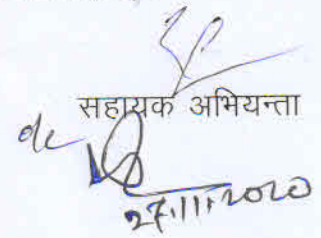 सहायक अभियन्ता
27.11.2020